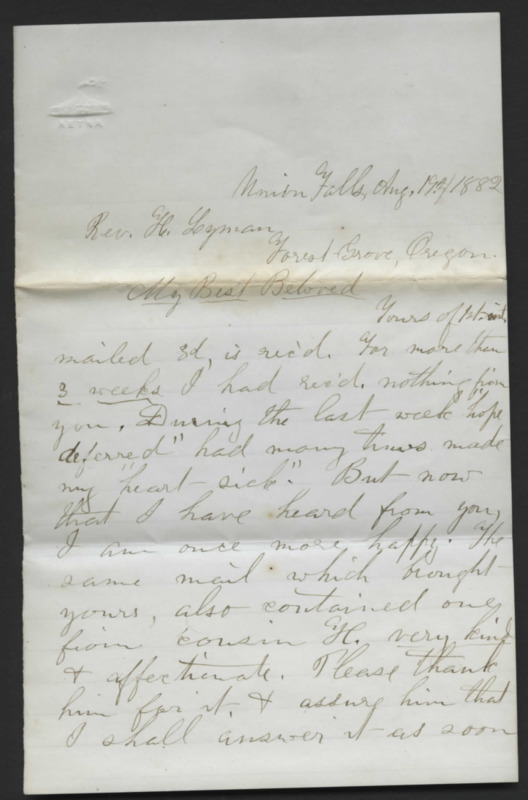 Union Falls, Aug. 17th/1882
Rev. H. Lyman,
Forest Grove, Oregon.
My Best Beloved
Yours of 1st inst.
mailed 3d, is rec'd. For more than
3 weeks I had rec'd. nothing from
you. During the last week "hope
deferred" had many times made
my "heart sick". But now
that I have heard from you,
I am once more happy. The
same mail which brought
yours, also contained one
from cousin H. very kind
& affectionate. Please thank
him for it, & assure him that
I shall answer it as soon